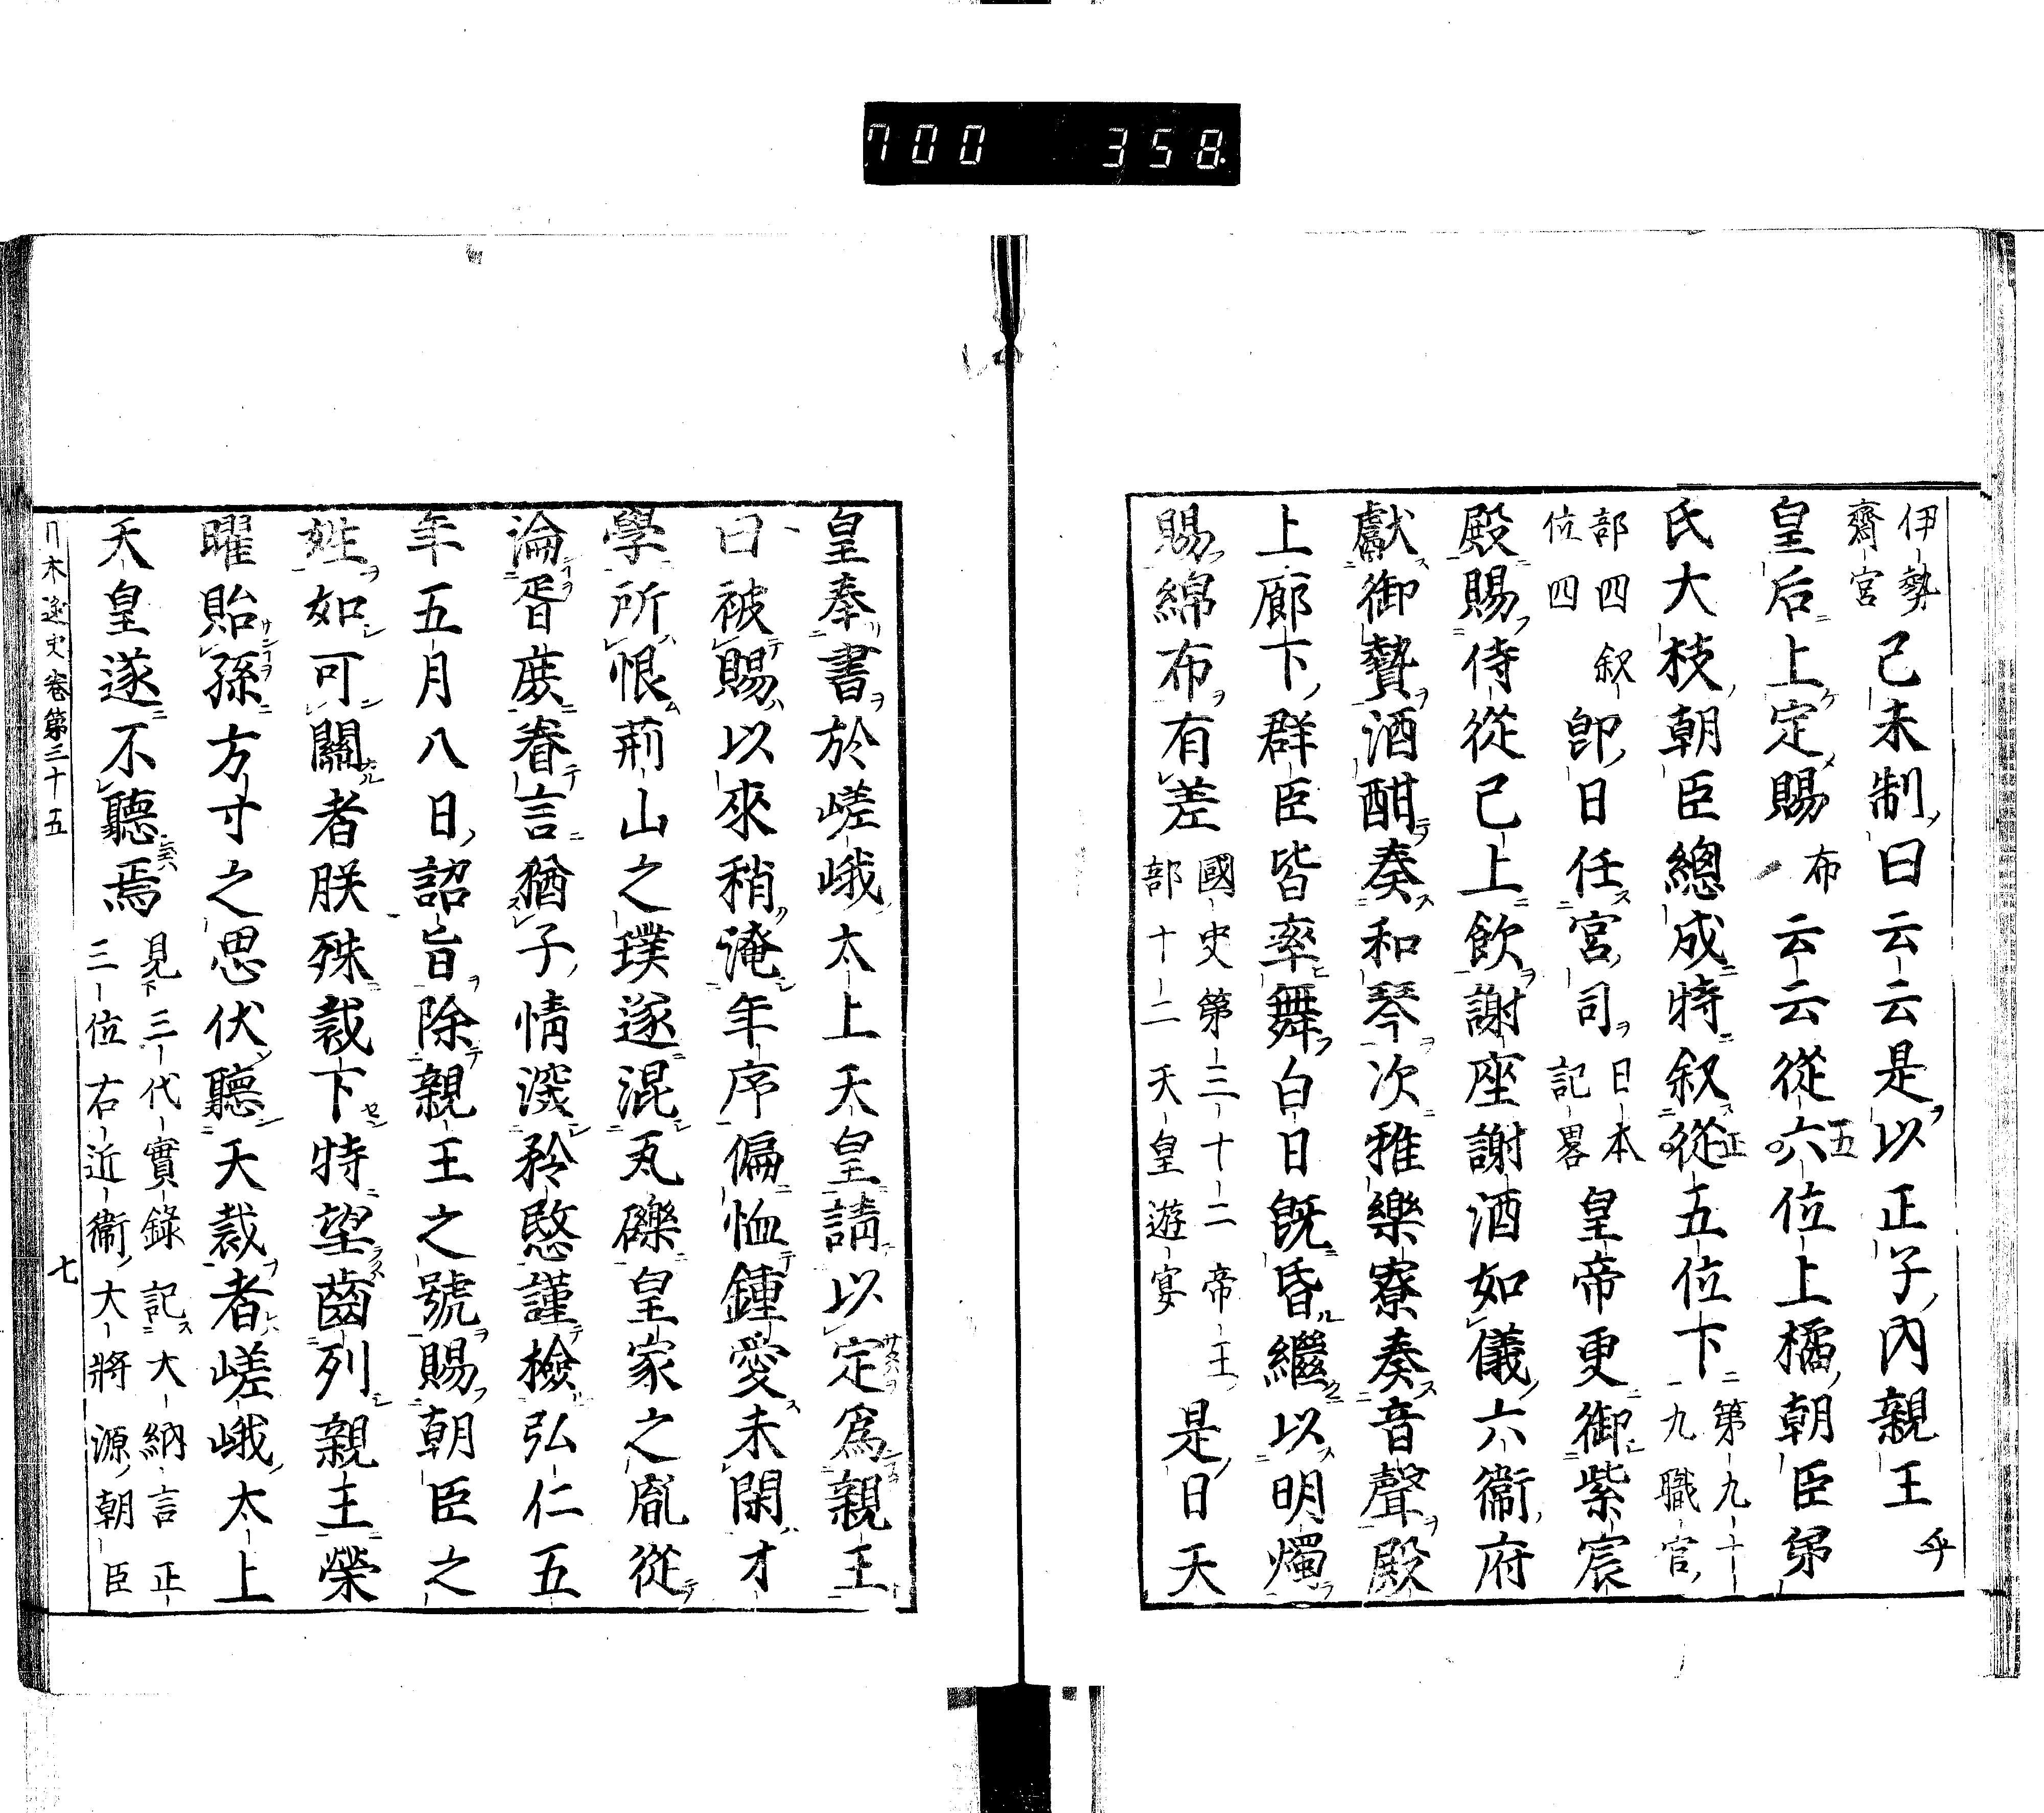 700 358
伊勢齋宮己未制曰云云是以正子內親王乎
皇后上定賜布云云從六位上橘朝臣弟
五
氏大枝朝臣總成特叙從五位下第九十九職官
正
部四叙位四即日任宮司日本記畧皇帝更御紫宸
殿賜侍從已上飲謝座謝酒如儀六衞府
獻御贄酒酣奏和琴次雅樂寮奏音聲殿
上廊下群臣皆率舞白日旣昏繼以明燭
賜綿布有差國史第三十二帝王部十二天皇遊宴是日天
皇奉書於嵯峨太上天皇請以定爲親王
曰被賜以來稍淹年序偏恤鍾愛未閑才
學所恨荊山之璞遂混瓦礫皇家之胤從
淪胥庶眷言猶子情深矜愍謹檢弘仁五
年五月八日詔旨除親王之號賜朝臣之
姓如可關者朕殊裁下特望齒列親王榮
曜貽孫方寸之思伏聽天裁者嵯峨太上
天皇遂不聽焉見三代實錄記大納言正三位右近衞大將源朝臣
日本逸史卷第三十五 七